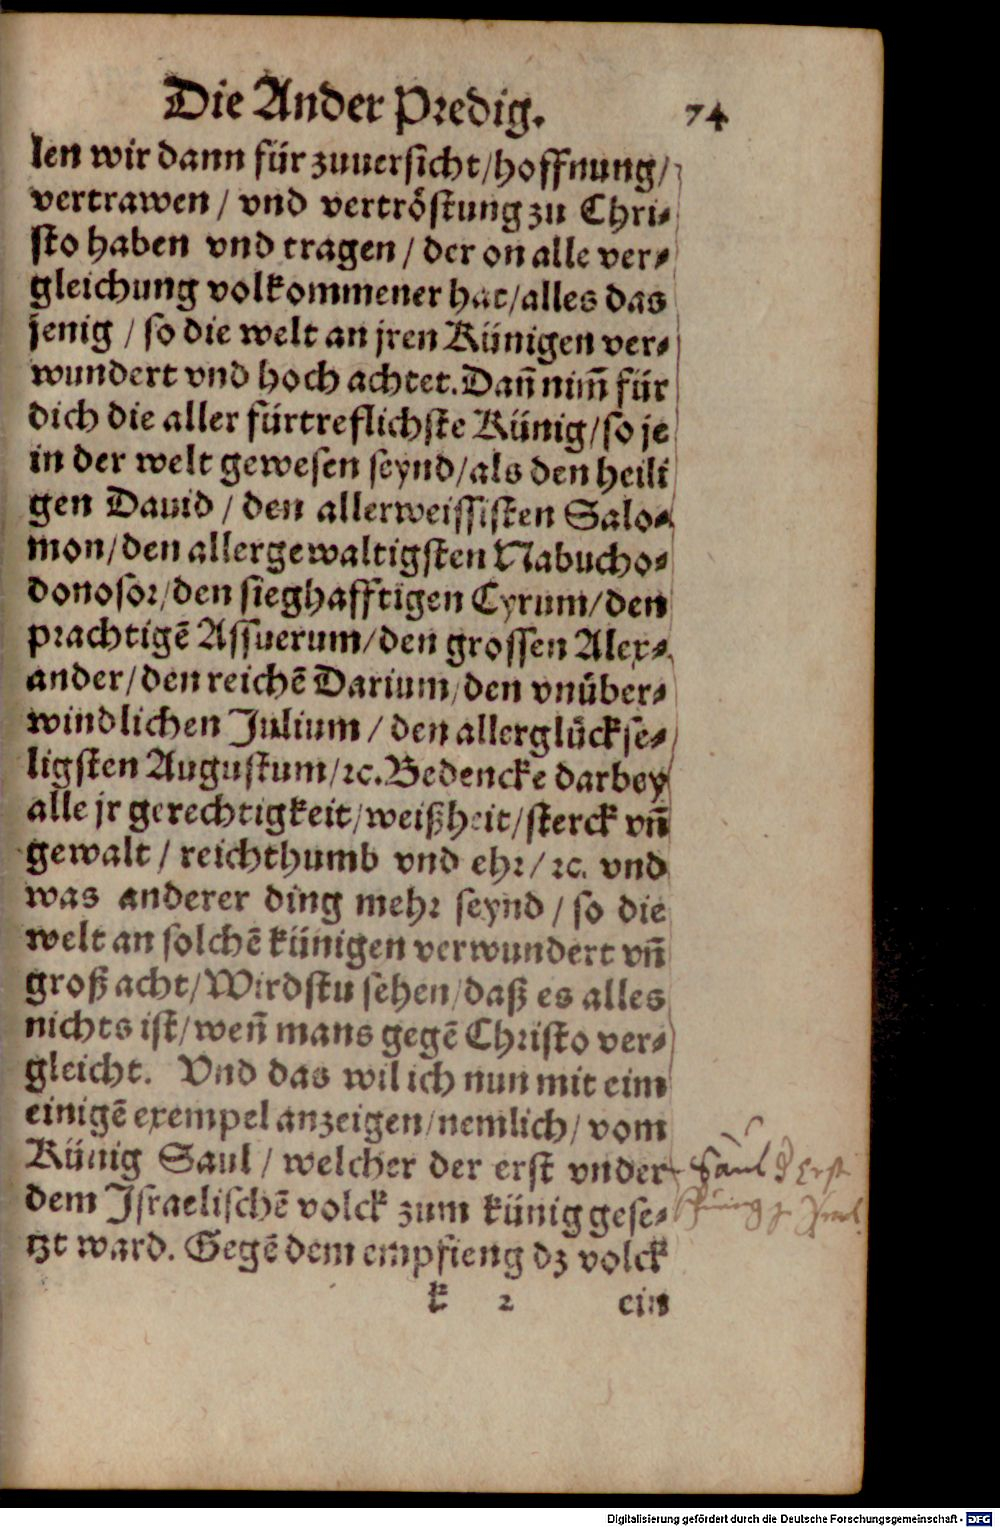 Die Ander Predig. 74
len wir dann für zuuersicht/hoffnung/
vertrawen / vnd vertröstung zu Chri-
sto haben vnd tragen / der on alle ver-
gleichung volkommener hat/alles das
jenig / so die welt an jren Künigen ver-
wundert vnd hoch achtet. Dañ nim̃ für
dich die aller fürtreflichste Künig/so je
in der welt gewesen seynd/als den heili
gen Dauid / den allerweissisten Salo-
mon/den allergewaltigsten Nabucho-
donosor/den sieghafftigen Cyrum/den
prachtigē Assuerum/den grossen Alex-
ander/den reichē Darium/den vnüber-
windlichen Julium / den allerglückse-
ligsten Augustum/ꝛc. Bedencke darbey
alle jr gerechtigkeit/weißheit/sterck vñ
gewalt / reichthumb vnd ehr/ ꝛc. vnd
was anderer ding mehr seynd / so die
welt an solchē künigen verwundert vñ
groß acht/Wirdstu sehen/daß es alles
nichts ist/weñ mans gegē Christo ver-
gleicht. Vnd das wil ich nun mit eim
einigē exempel anzeigen/nemlich/ vom
Künig Saul / welcher der erst vnder
dem Jsraelischē volck zum künig gese-
tzt ward. Gegē dem empfieng dz volck
k 2 ein
Saul
Digitalisierung gefördert durch die Deutsche Forschungsgemeinschaft - DFG